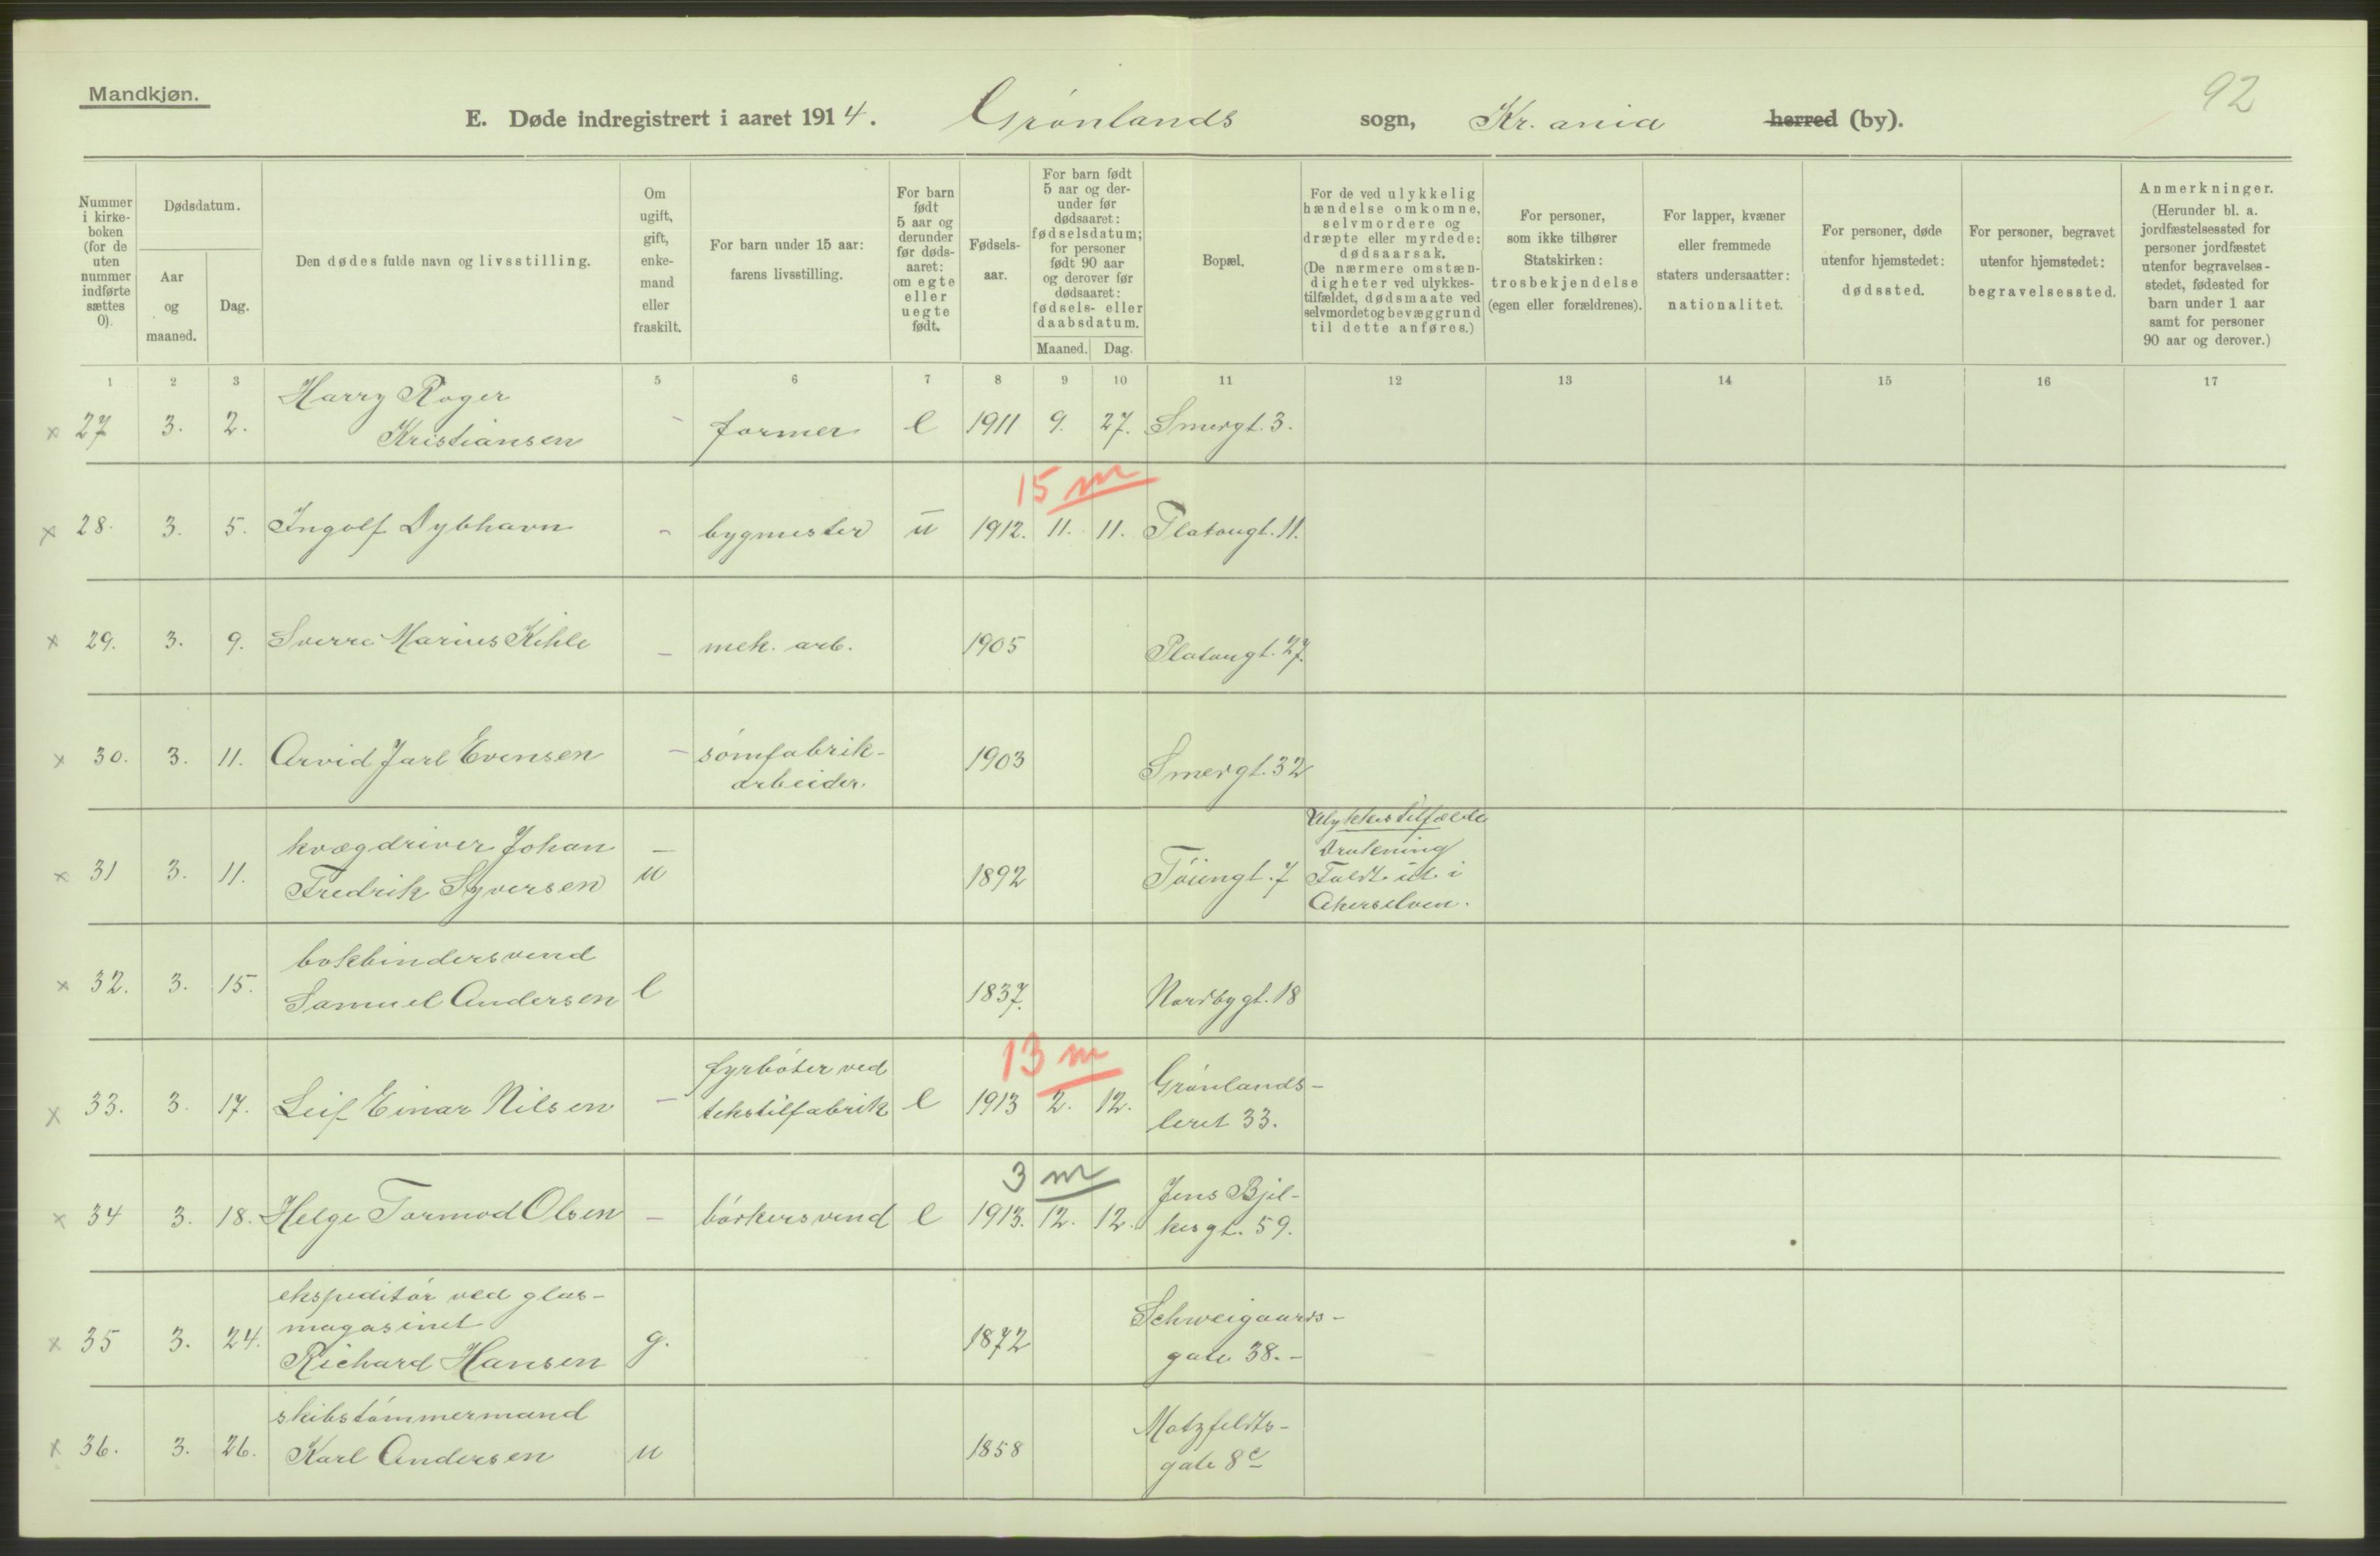 Mandkjøn.
92
E. Døde indregistrert i aaret 1914. Grønlands sogn, Kr.ania herred (by).
Nummer i kirke- boken (for de uten nummer indførte sættes 0).
Dødsdatum.
Aar og maaned.
Dag.
Den dødes fulde navn og livsstilling.
Om ugift, gift, enke- mand eller fraskilt.
For barn under 15 aar: farens livsstilling.
For barn født 5 aar og derunder før døds- aaret: om egte eller uegte født.
Fødsels- aar.
For barn født 5 aar og der- under før dødsaaret: fødselsdatum; for personer født 90 aar og derover før dødsaaret: fødsels- eller daabsdatum.
Maaned. Dag.
Bopæl.
For de ved ulykkelig hændelse omkomne, selvmordere og dræpte eller myrdede: dødsaarsak. (De nærmere omstæn- digheter ved ulykkes- tilfældet, dødsmaate ved selvmordet og bevæggrund til dette anføres.)
For personer, som ikke tilhører Statskirken: trosbekjendelse (egen eller forældrenes).
For lapper, kvæner eller fremmede staters undersaatter: nationalitet.
For personer, døde utenfor hjemstedet: dødssted.
For personer, begravet utenfor hjemstedet: begravelsessted.
Anmerkninger. (Herunder bl. a. jordfæstelsessted for personer jordfæstet utenfor begravelses- stedet, fødested for barn under 1 aar samt for personer 90 aar og derover.)
1 2 3 5 6 7 8 9 10 11 12 13 14 15 16 17
Harry Roger
x 27 3. 2. Kristiansen - former e 1911 9. 27. Smergt. 3.
15 m
x 28. 3. 5. Ingolf Dybhavn - bygmester u 1912. 11. 11. Platougt. 11.
x 29. 3. 9. Sverre Marius Kihle - mek. arb. 1905 Platougt. 27.
x 30. 3. 11. Arvid Jarl Evensen - sømfabrik- 1903 Smergt. 32
arbeider.
Ulykkestilfælde
kvægdriver Johan Drukning
x 31 3. 11. Fredrik Syversen u 1892 Tøiengt. 7 Faldt ut i
Akerselven.
bokbindersvend
x 32. 3. 15. Samuel Andersen e 1837. Nordbygt. 18
13 m
fyrbøter ved Grønlands-
x 33. 3. 17. Leif Einar Nilsen - tekstilfabrik e 1913 2. 12. leret 33.
3 m
Jens Bjel-
x 34 3. 18. Helge Tormod Olsen - bøkkersvend e 1913. 12. 12. kesgt. 59.
ekspeditør ved glas-
magasinet Schweigaards-
x 35 3. 24. Richard Hansen g. 1872 gate 38. -
skibstømmermand Motzfeldts-
x 36. 3. 26. Karl Andersen u 1858 gate 8c